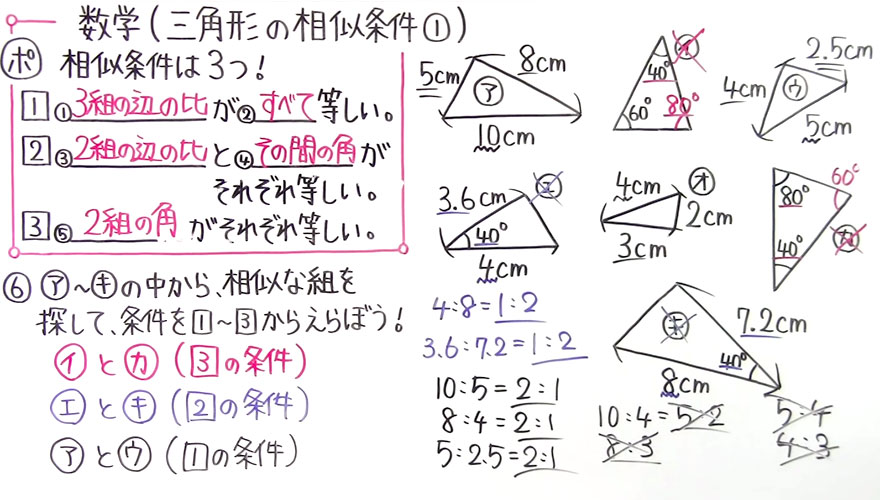 数学(三角形の相似条件①)
ポ 相似条件は3つ!
1 ①3組の辺の比が②すべて等しい。
2 ③2組の辺の比と④その間の角が
それぞれ等しい。
3 ⑤2組の角がそれぞれ等しい。
⑥ ㋐~㋖の中から、相似な組を
探して、条件を1~3からえらぼう!
㋑と㋕(3の条件)
㋓と㋖(2の条件)
㋐と㋒(1の条件)
5cm
㋐
8cm
10cm
㋑
40°
60°
80°
2.5cm
4cm
㋒
5cm
3.6cm
㋓
40°
4cm
4cm
㋔
2cm
3cm
60°
80°
㋕
40°
㋖
7.2cm
40°
8cm
4:8=1:2
3.6:7.2=1:2
10:5=2:1
8:4=2:1
5:2.5=2:1
10:4=5:2
8:3
5:4
4:3